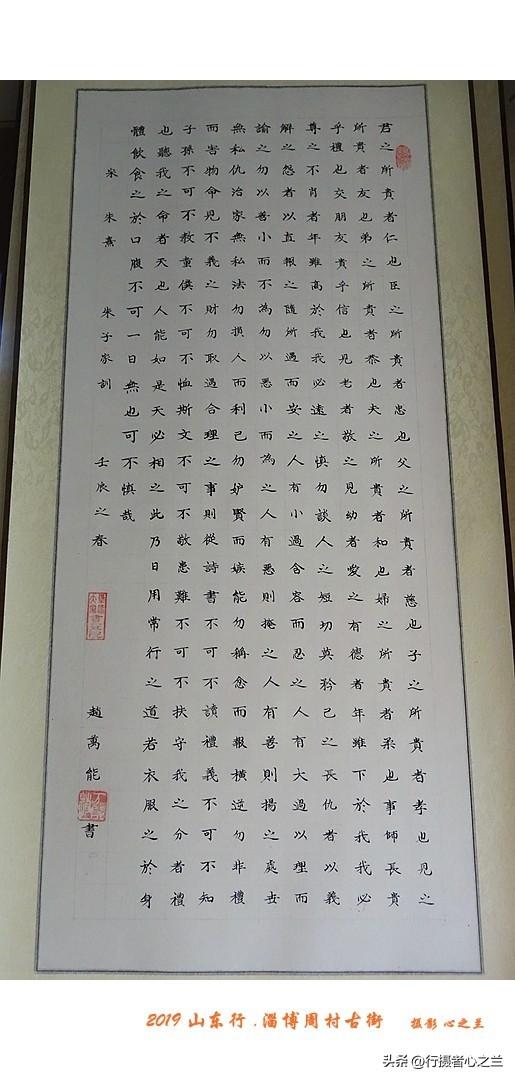 君之所貴者仁也臣之所貴者忠也父之所貴者慈也子之所貴者孝也見之
所貴者友也弟之所貴者恭也夫之所貴者和也婦之所貴者柔也事師長貴
乎禮也交朋友貴乎信也見老者敬之見幼者愛之有德者年雖下於我我必
尊之不肖者年雖高於我我必遠之慎勿談人之短切莫矜己之長仇者以義
解之怨者以直報之隨所遇而安之人有小過含容而忍之人有大過以理而
諭之勿以善小而不為勿以惡小而為之人有惡則掩之人有善則揚之處世
無私仇治家無私法勿損人而利己勿妒賢而嫉能勿稱忿而報橫逆勿非禮
而害物命見不義之財勿取遇合理之事則從詩書不可不讀禮義不可不知
子孫不可不教童僕不可不恤斯文不可不敬患難不可不扶守我之分者禮
也聽我之命者天也人能如是天必相之此乃日用常行之道若衣服之於身
體飲食之於口腹不可一日無也可不慎哉
宋 朱熹 朱子家訓 壬辰之春
趙萬能 書
2019 山东行 . 淄博周村古街 摄影 心之兰
头条 @行摄者心之兰